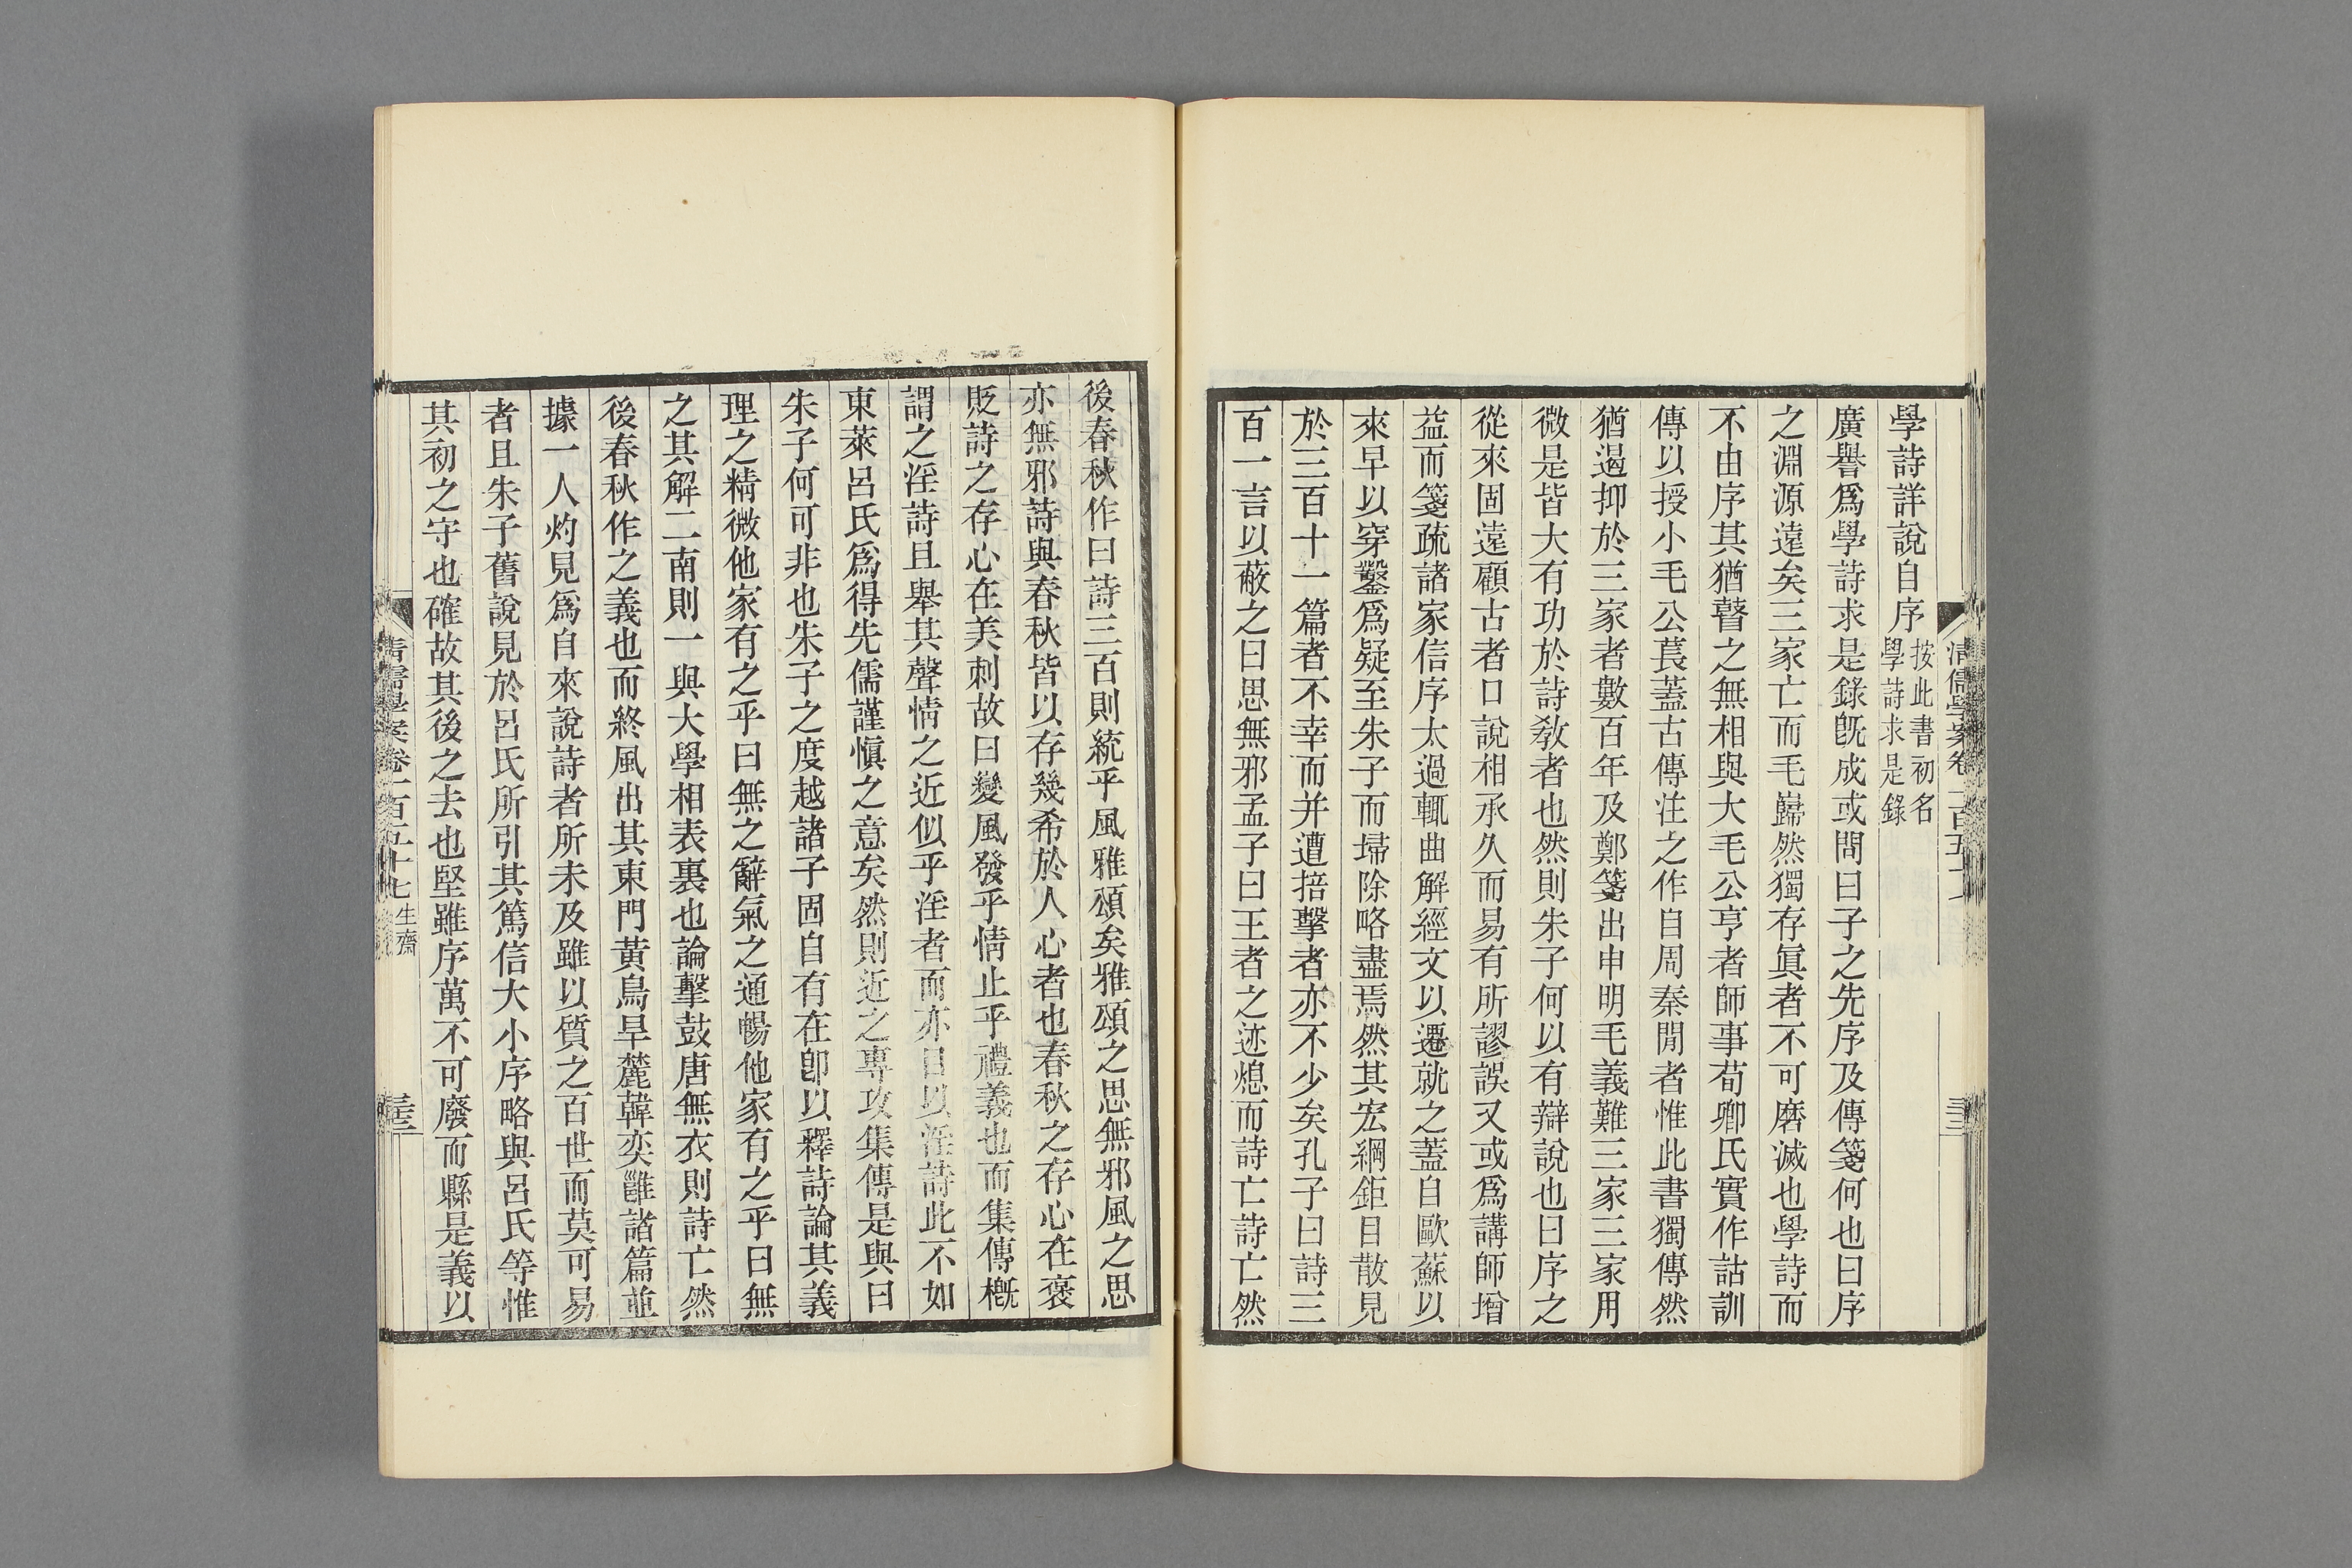 學詩詳說自序按此書初名學詩求是錄
廣譽爲學詩求是錄旣成或問曰子之先序及傳箋何也曰序
之淵源遠矣三家亡而毛巋然獨存眞者不可磨滅也學詩而
不由序其猶瞽之無相與大毛公亨者師事荀卿氏實作詁訓
傳以授小毛公萇蓋古傳注之作自周秦閒者惟此書獨傳然
猶遏抑於三家者數百年及鄭箋出申明毛義難三家三家用
微是皆大有功於詩敎者也然則朱子何以有辯說也曰序之
從來固遠顧古者口說相承久而易有所謬誤又或爲講師增
益而箋疏諸家信序太過輒曲解經文以遷就之蓋自歐蘇以
來早以穿鑿爲疑至朱子而埽除略盡焉然其宏綱鉅目散見
於三百十一篇者不幸而并遭掊擊者亦不少矣孔子曰詩三
百一言以蔽之曰思無邪孟子曰王者之迹熄而詩亡詩亡然
清儒學案卷一百五十七
三三
後春秋作曰詩三百則統乎風雅頌矣雅頌之思無邪風之思
亦無邪詩與春秋皆以存幾希於人心者也春秋之存心在褒
貶詩之存心在美刺故曰變風發乎情止乎禮義也而集傳槪
謂之淫詩且舉其聲情之近似乎淫者而亦目以淫詩此不如
東萊呂氏爲得先儒謹愼之意矣然則近之專攻集傳是與曰
朱子何可非也朱子之度越諸子固自有在卽以釋詩論其義
理之精微他家有之乎曰無之辭氣之通暢他家有之乎曰無
之其解二南則一與大學相表裏也論擊鼓唐無衣則詩亡然
後春秋作之義也而終風出其東門黃鳥旱麓韓奕雝諸篇並
據一人灼見爲自來說詩者所未及雖以質之百世而莫可易
者且朱子舊說見於呂氏所引其篤信大小序略與呂氏等惟
其初之守也確故其後之去也堅雖序萬不可廢而縣是義以
清儒學案卷一百五十七 生齋
三三